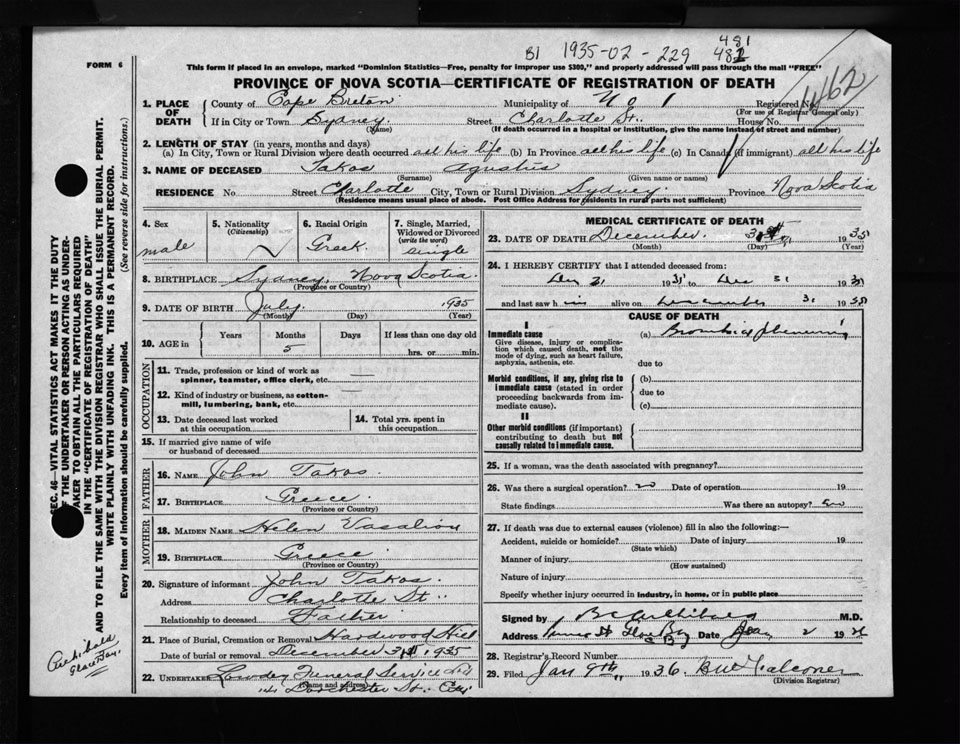 B1 1935-02-229 481
482
FORM 6
This form if placed in an envelope, marked "Dominion Statistics—Free, penalty for improper use $300," and properly addressed will pass through the mail "FREE"
PROVINCE OF NOVA SCOTIA—CERTIFICATE OF REGISTRATION OF DEATH
1. PLACE OF DEATH
County of Cape Breton Municipality of No 1 Registered No.
(For use of Registrar General only)
If in City or Town Sydney Street Charlotte St. House No.
(Name) (If death occurred in a hospital or institution, give the name instead of street and number)
2. LENGTH OF STAY (in years, months and days)
(a) In City, Town or Rural Division where death occurred all his life (b) In Province all his life (c) In Canada (if immigrant) all his life
3. NAME OF DECEASED Takos Agustus
(Surname) (Given name or names)
RESIDENCE No Street Charlotte City, Town or Rural Division Sydney Province Nova Scotia
(Residence means usual place of abode. Post Office Address for residents in rural parts not sufficient)
4. Sex male
5. Nationality (Citizenship)
6. Racial Origin Greek
7. Single, Married, Widowed or Divorced (write the word) single
8. BIRTHPLACE Sydney, Nova Scotia
(Province or Country)
9. DATE OF BIRTH July 1935
(Month) (Day) (Year)
10. AGE in Years Months 5 If less than one day old
hrs. or min.
OCCUPATION
11. Trade, profession or kind of work as spinner, teamster, office clerk, etc.
12. Kind of industry or business, as cotton-mill, lumbering, bank, etc.
13. Date deceased last worked at this occupation
14. Total yrs. spent in this occupation
15. If married give name of wife or husband of deceased
FATHER
16. NAME John Takos
17. BIRTHPLACE Greece
(Province or Country)
MOTHER
18. MAIDEN NAME Helen
19. BIRTHPLACE Greece
(Province or Country)
20. Signature of informant John Takos
Address Charlotte St.
Relationship to deceased Father
21. Place of Burial, Cremation or Removal Hardwood Hill
Date of burial or removal December 31 1935
22. UNDERTAKER Funeral Service Ltd
(Name and address)
Dorchester St. City
MEDICAL CERTIFICATE OF DEATH
23. DATE OF DEATH December 31 1935
(Month) (Day) (Year)
24. I HEREBY CERTIFY that I attended deceased from:
Dec 31 1935 to Dec 31 1935
and last saw him alive on December 31 1935
CAUSE OF DEATH
I
Immediate cause
Give disease, injury or complication which caused death, not the mode of dying, such as heart failure, asphyxia, asthenia, etc.
(a) Bronchial
due to
Morbid conditions, if any, giving rise to immediate cause (stated in order proceeding backwards from immediate cause).
(b)
due to
(c)
II
Other morbid conditions (if important) contributing to death but not causally related to immediate cause.
25. If a woman, was the death associated with pregnancy?
26. Was there a surgical operation? no Date of operation 19
State findings Was there an autopsy? no
27. If death was due to external causes (violence) fill in also the following:—
Accident, suicide or homicide? Date of injury 19
(State which)
Manner of injury
(How sustained)
Nature of injury
Specify whether injury occurred in industry, in home, or in public place
Signed by M.D.
Address Date Jan 2 19
28. Registrar's Record Number
29. Filed Jan 9th 1936
(Division Registrar)
SEC. 46—VITAL STATISTICS ACT MAKES IT THE DUTY
OF THE UNDERTAKER OR PERSON ACTING AS UNDERTAKER TO OBTAIN ALL THE PARTICULARS REQUIRED
IN THE "CERTIFICATE OF REGISTRATION OF DEATH"
AND TO FILE THE SAME WITH THE DIVISION REGISTRAR WHO SHALL ISSUE THE BURIAL PERMIT.
WRITE PLAINLY WITH UNFADING INK. THIS IS A PERMANENT RECORD.
Every item of information should be carefully supplied. (See reverse side for instructions.)
Archibald
Glace Bay.